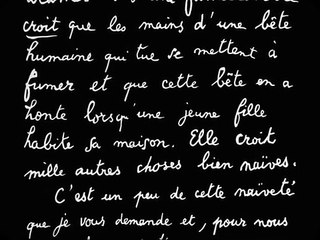 croit que les mains d'une bête
humaine qui tue se mettent à
fumer et que cette bête en a
honte lorsqu'une jeune fille
habite sa maison. Elle croit
mille autres choses bien naïves.
C'est un peu de cette naïveté
que je vous demande et, pour nous